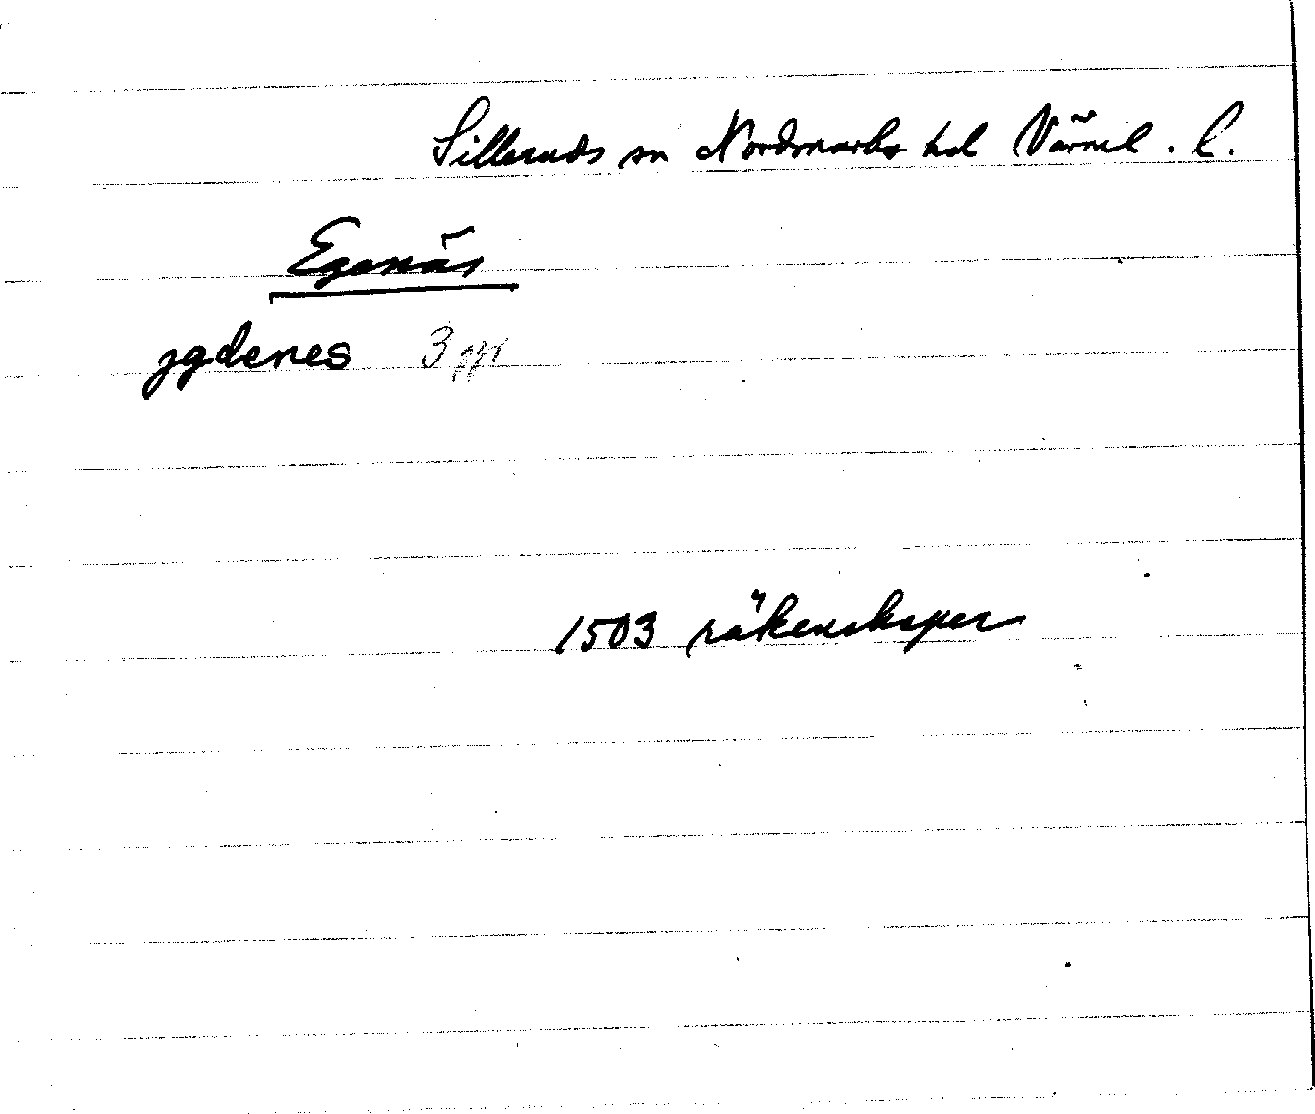 Silleruds sn Nordmarks hd Värml. l.
Egenäs
jgdenes 3 ggr
1503 räkenskaper